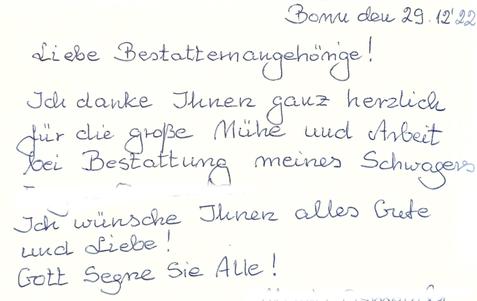 Bonn den 29.12'22
Liebe Bestatternangehörige!
Ich danke Ihnen ganz herzlich
für die große Mühe und Arbeit
bei Bestattung meines Schwagers
Ich wünsche Ihnen alles Gute
und Liebe!
Gott Segne Sie Alle!